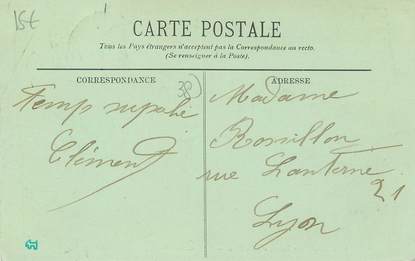 15€
CARTE POSTALE
Tous les Pays étrangers n'acceptent pas la Correspondance au recto.
(Se renseigner à la Poste).
CORRESPONDANCE
ADRESSE
38
Temps superbe
Clément
Madame
Romillon
rue Lanterne
21
Lyon